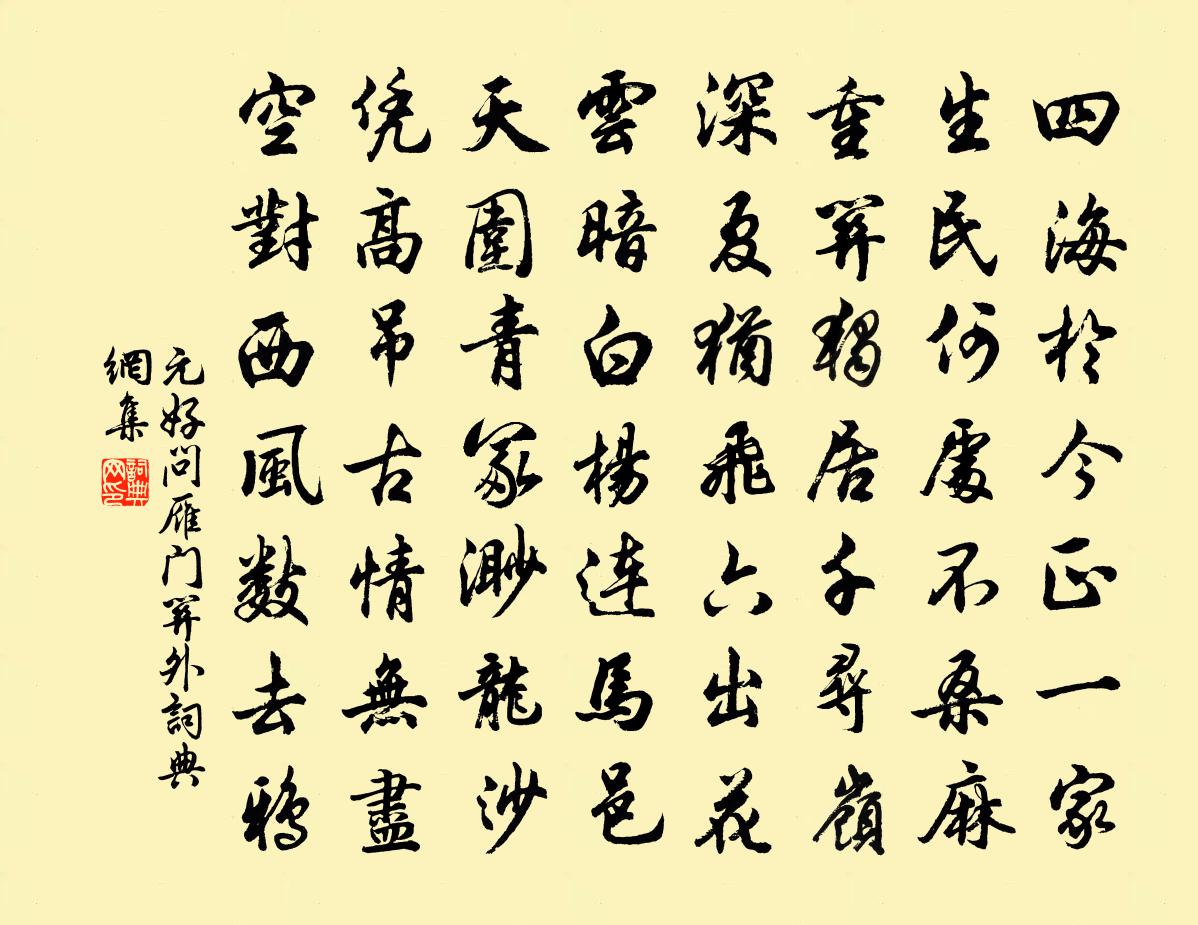 四海於今正一家
生民何處不桑麻
重關獨居千尋嶺
深夏猶飛六出花
雲暗白楊連馬邑
天圍青冢渺龍沙
凭高吊古情無盡
空對西風數去鴉
元好问雁门關外詞典
網集
詞典
网印